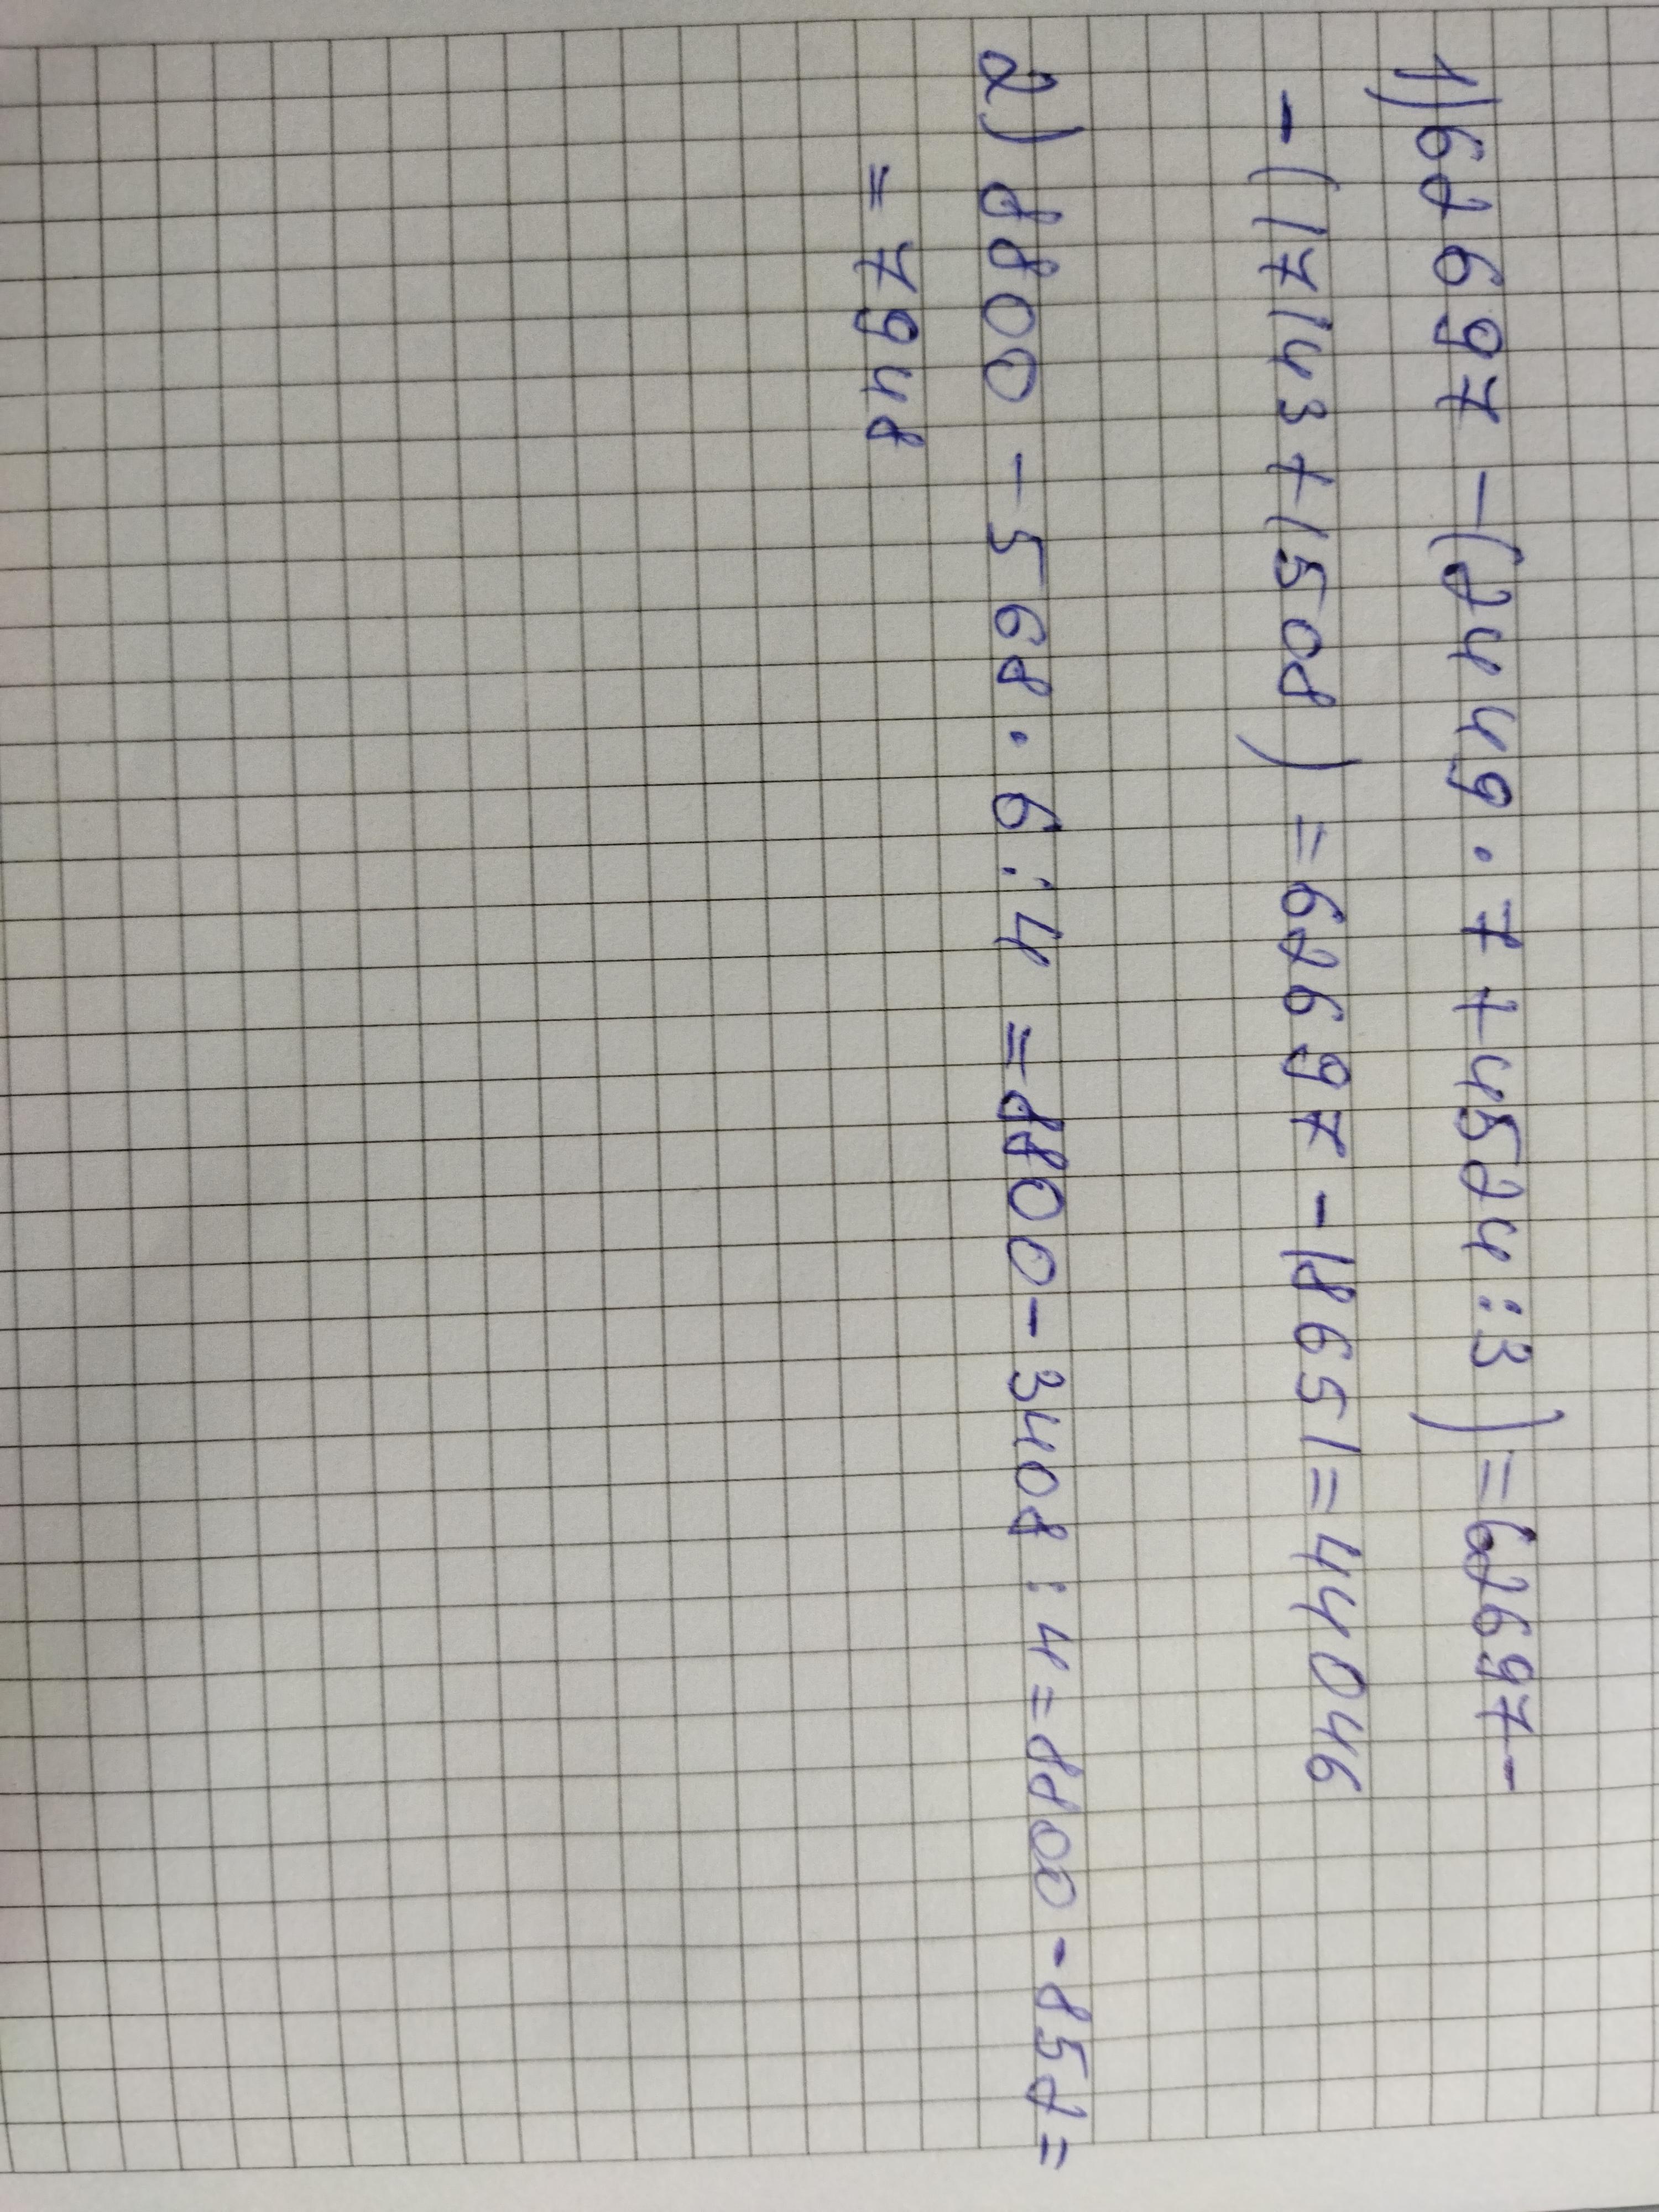 1) 62697 - (2449 · 7 + 4524 : 3) = 62697 -
- (17143 + 1508) = 62697 - 18651 = 44046
2) 8800 - 568 · 6 : 4 = 8800 - 3408 : 4 = 8800 - 852 =
= 7948